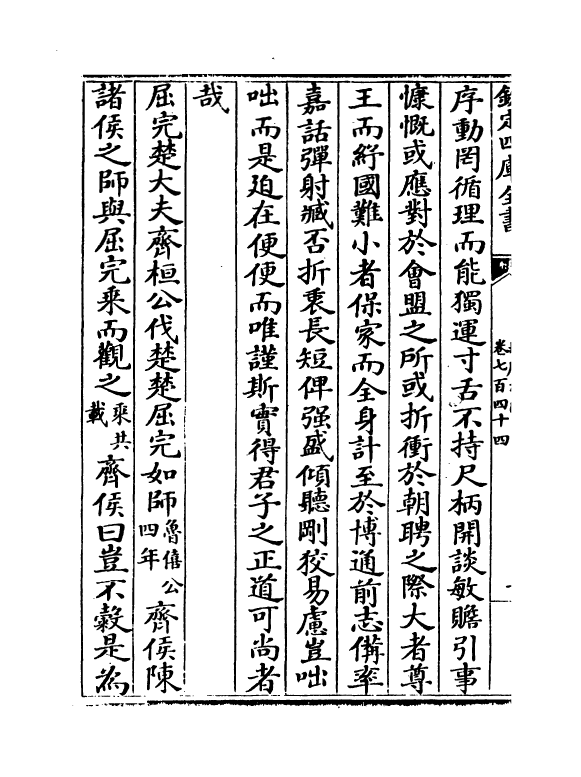 欽定四庫全書
卷七百四十四
序動罔循理而能獨運寸舌不持尺柄開談敏贍引事
慷慨或應對於會盟之所或折衝於朝聘之際大者尊
王而紓國難小者保家而全身計至於博通前志備率
嘉話彈射臧否折衷長短俾强盛傾聽剛狡易慮豈咄
咄而是迫在便便而唯謹斯實得君子之正道可尚者
哉
屈完楚大夫齊桓公伐楚楚屈完如師魯僖公四年齊侯陳
諸侯之師與屈完乘而觀之乘共載齊侯曰豈不穀是為